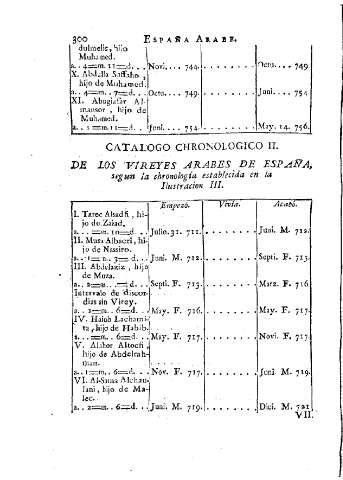 300 ESPAÑA ARABE.
dulmelic, hijo
Muhamed.
a.. 4=m. 11=d. . . Novi. . . . 744. . . . . . . . . Octu. . . . 749.
X. Abdalla Saffaho,
hijo de Muhamed.
a.. 4=m.. 7=d. . . Octu. . . . 749. . . . . . . . . Juni. . . . 754
XI. Abugiafar Al-
mansor, hijo de
Muhamed.
a. . 1=m. 11=d. . . Juni. . . . 754. . . . . . . . . May. 14. 756.
CATALOGO CHRONOLOGICO II.
DE LOS VIREYES ARABES DE ESPAÑA,
segun la chronología establecida en la
Ilustracion III.
Empezó. Vivia. Acabó.
I. Tarec Alsadfi, hi-
jo de Zaiad.
a. . . =m. 10=d. . Julio. 31. 711. . . . . . . . . Juni. M. 712.
II. Musa Albacri, hi-
jo de Nassiro.
a. . 1=m. 3=d. . . Juni. M. 712. . . . . . . . . Septi. F. 713.
III. Abdelaziz, hijo
de Muza.
a.. 2=m. . .=d. . . Septi. F. 713. . . . . . . . . Marz. F. 716.
Intervalo de discor-
dias sin Virey.
a. . . 2=m. . 6=d. . . May. F. 716. . . . . . . . . May. F. 717.
IV. Haiub Lachami-
ta, hijo de Habib.
a. . .=m. . 6=d. . . May. F. 717. . . . . . . . . Novi. F. 717.
V. Alahor Altocfi,
hijo de Abdelrah-
man.
a. . 1=m. . 6=d. . . Nov. F. 717. . . . . . . . . Juni. M. 719.
VI. Al-Sama Alchau-
lani, hijo de Ma-
lec.
a. . 2=m. . 6=d. . . Juni. M. 719. . . . . . . . . Dici. M. 721
VII.